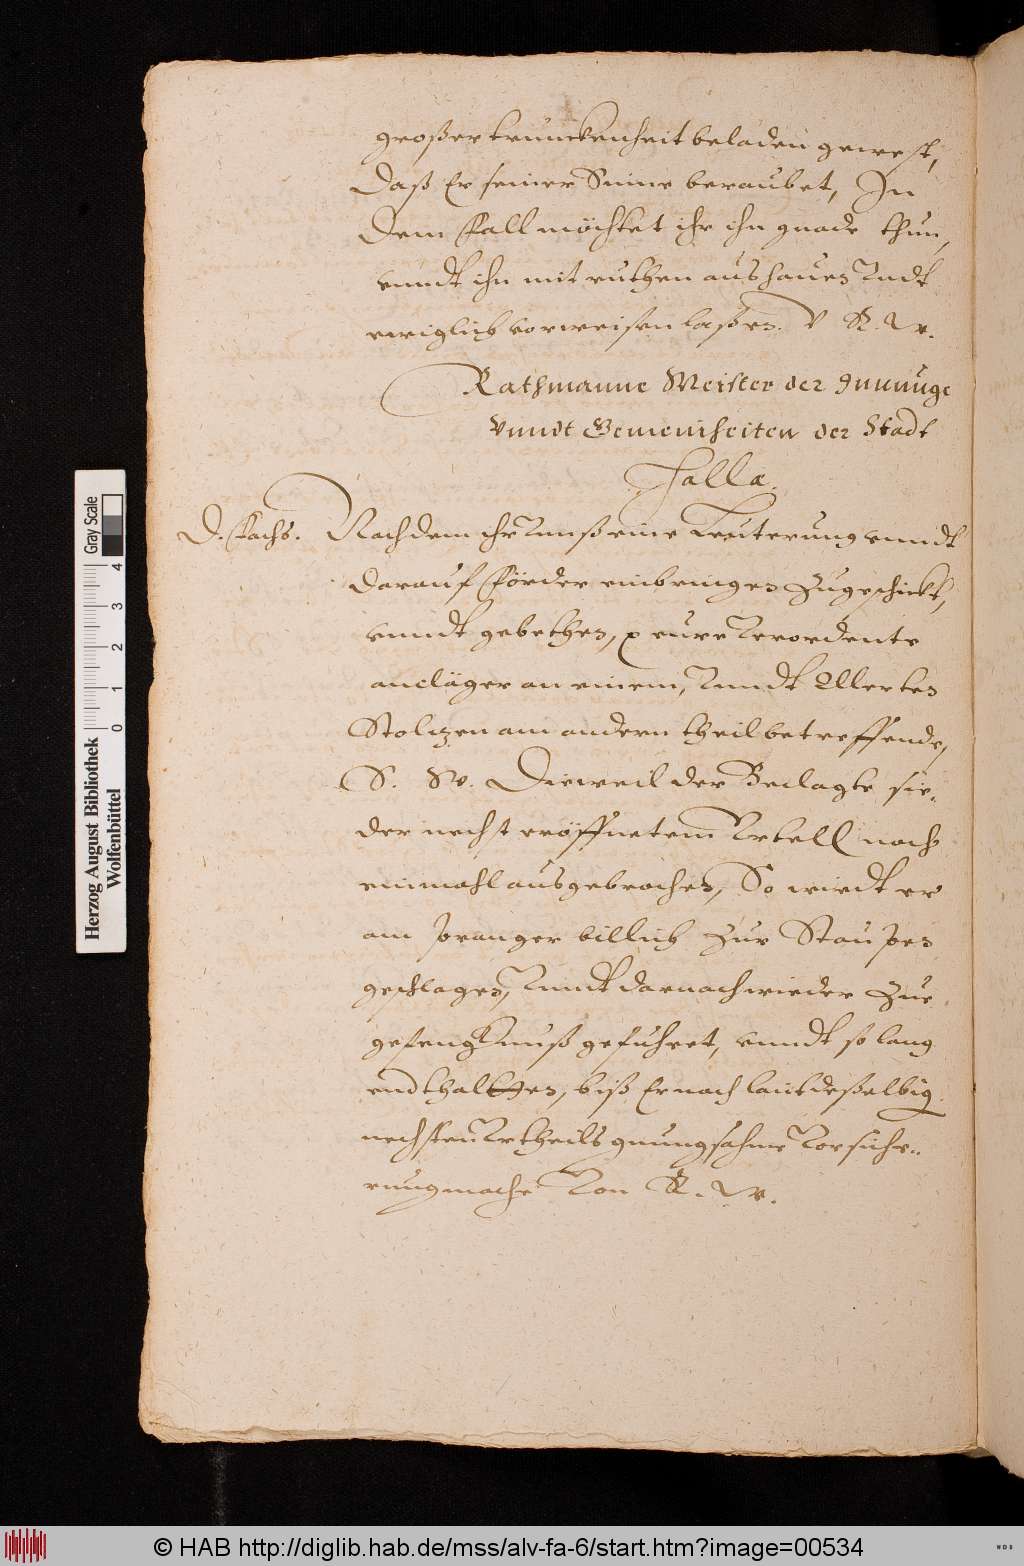 großer trunckenheit beladen gewest,
daß Er seiner Sinne beraubet, In
dem Fall möchtet ihr ihn gnade thun,
vnndt ihn mit ruthen aushauen vndt
ewiglich vorweisen laßen. V R. W.
Rathmanne Meister der Innunge
Vnndt Gemeinheiten der Stadt
Halla.
D. Fachs. Nachdem ihr vnnß eine Leüterung vnndt
darauf Förder einbringen zugeschickt,
vnndt gebethen, p eure verordente
ancläger an einem, vnndt
Stoltzen am andern theil betreffende,
S. W. Dieweil der Beclagte sie-
der nechst eröffnetem Vrtell noch
einmahl ausgebrochen, So wirdt er
am pranger billich zur Staupen
geschlagen, vnndt darnach wieder zue
gefengknuß gefuhret, vnndt so lang
endthalten, biß Er nach laut deßelbig
nechsten Vrtheils gnungsahme vorsiche-
rung mache Von R. W.
Herzog August Bibliothek
Wolfenbüttel
0 1 2 3 4
Gray Scale
© HAB http://diglib.hab.de/mss/alv-fa-6/start.htm?image=00534